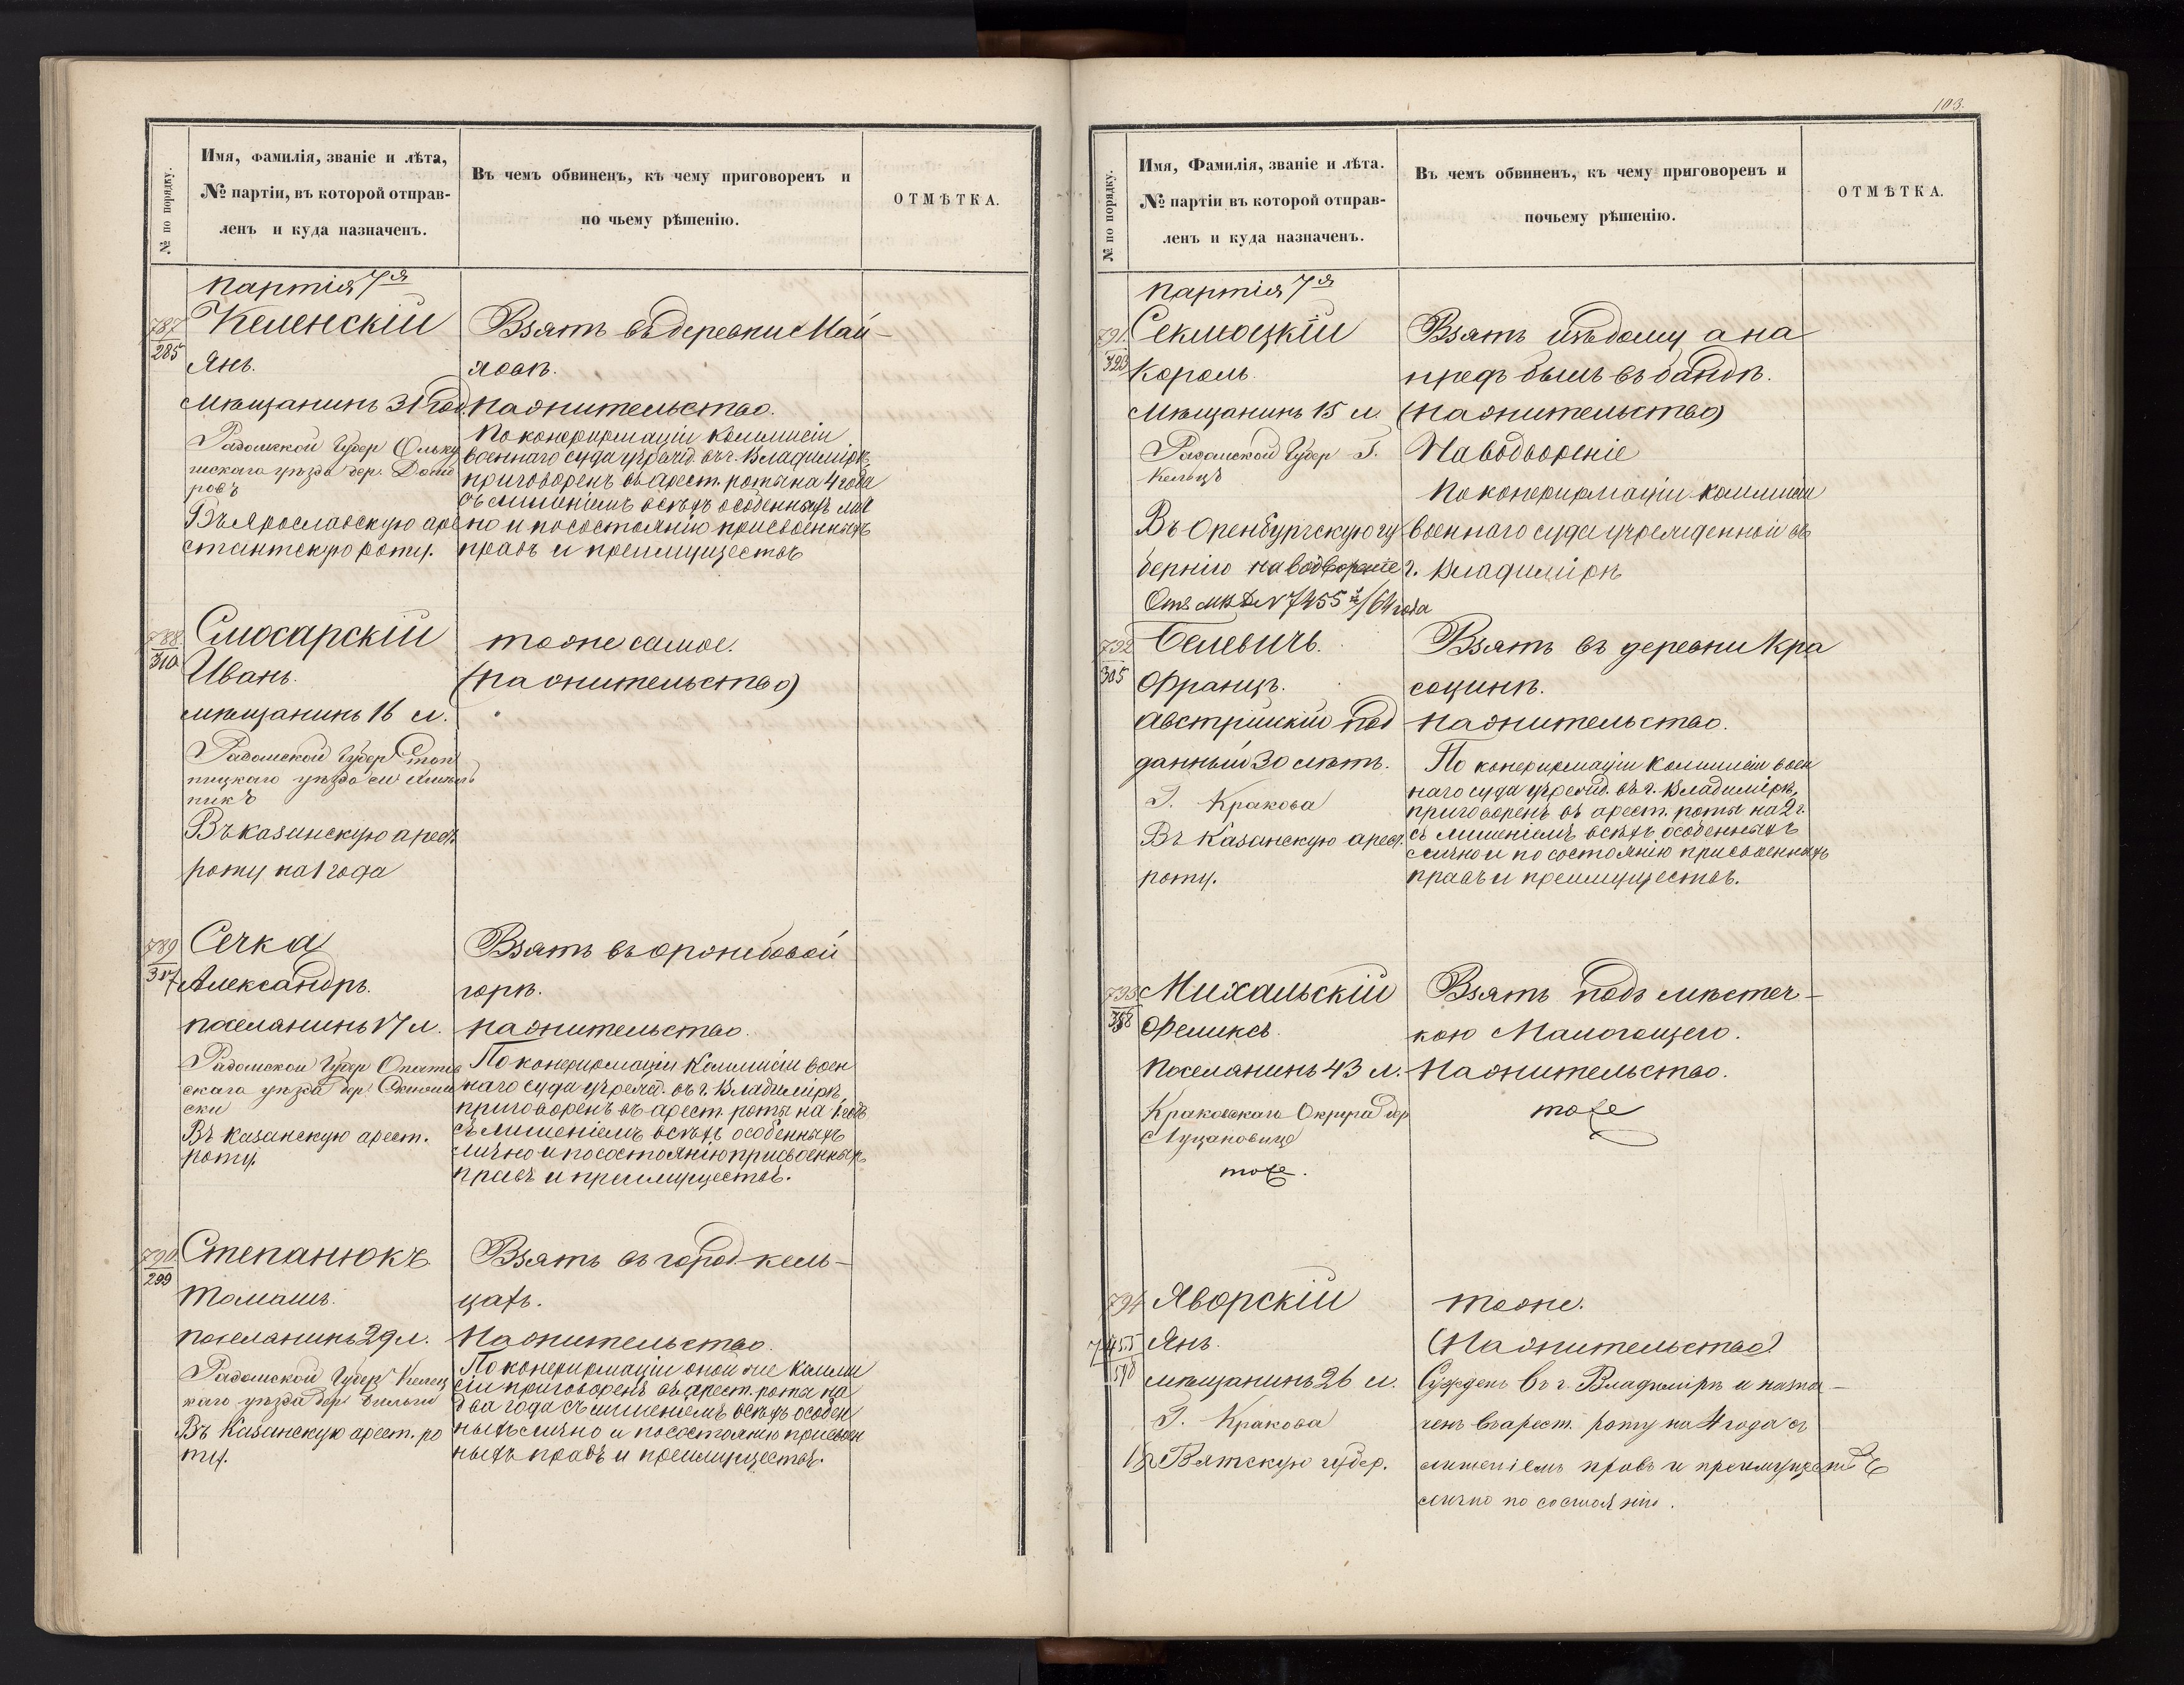 № по порядку.
Имя, фамилія, званіе и лѣта,
№ партіи, въ которой отправ-
ленъ и куда назначенъ.
Въ чемъ обвиненъ, къ чему приговоренъ и
по чьему рѣшенію.
ОТМѢТКА.
партія 7я
787
285
Келенскій
Янъ.
Мѣщанинъ 31 год.
Радомской Губер Ольку
шскаго уѣзда дер.
ровъ
Въ Ярославскую аре
стантскую роту.
Взятъ въ деревни Май-
ховѣ.
На жительство.
По конфирмаціи Коммисіи
военнаго суда учрежд. въ г. Владимірѣ,
приговоренъ въ арест. роты на 4 года
съ лишеніемъ всѣхъ особенныхъ лич
но и по состоянію присвоенныхъ
правъ и преимуществъ
788
310
Слюсарскій
Иванъ.
мѣщанинъ 16 л.
Радомской Губер Стоп
ницкаго уѣзда
никъ
Въ казанскую арест.
роту на 1 года
тоже самое.
(на жительство)
789
317
Сечка
Александръ.
поселанинъ 17 л.
Радомской Губер Опатов
скаго уѣзда дер.
ски
Въ казанскую арест.
роту.
Взятъ въ
горѣ.
на жительство.
По конфирмаціи Коммисіи воен
наго суда учрежд. въ г. Владимірѣ,
приговоренъ въ арест. роты на 1 годъ
съ лишеніемъ всѣхъ особенныхъ
лично и по состоянію присвоенныхъ
правъ и преимуществъ.
790
299
Степанюкъ
Томашъ.
поселанинъ 29 л.
Радомской Губер Келец
каго уѣзда дер.
Въ Казанскую арест. ро
ту.
Взятъ въ город кель-
цахъ.
На жительство.
По конфирмаціи оной же Комми
сіи приговоренъ въ арест. роты на
два года съ лишеніемъ всѣхъ особен
ныхъ лично и по состоянію присвоен
ныхъ правъ и преимуществъ.
103.
№ по порядку.
Имя, Фамилія, званіе и лѣта.
№ партіи въ которой отправ-
ленъ и куда назначенъ.
Въ чемъ обвиненъ, къ чему приговоренъ и
почьему рѣшенію.
ОТМѢТКА.
партія 7я
791
323
Секлюцкій
Кароль.
Мѣщанинъ 15 л.
Радомской Губер Г.
Кельцъ
Въ Оренбургскую гу
бернію на водвореніе
Отъ МВД № 7455 /64 года
Взятъ изъ дому а на
предъ былъ въ бандѣ.
(на жительство)
На водвореніе
По конфирмаціи коммисіи
военнаго суда учрежденной въ
г. Владимірѣ
792
305
Белевичъ.
Францъ.
Австрійскій под
данный 30 лѣтъ.
Г. Кракова
Въ Казанскую арест.
роту.
Взятъ въ деревни Кра
социнѣ.
на жительство.
По конфирмаціи Коммисіи воен
наго суда учрежд. въ г. Владимірѣ,
приговоренъ въ арест. роты на 2 г.
съ лишеніемъ всѣхъ особенныхъ
лично и по состоянію присвоенныхъ
правъ и преимуществъ.
793
358
Михальскій
Феликсъ.
Поселанинъ 43 л.
Краковскаго Округа дер
Луцановице
тоже.
Взятъ подъ мѣстеч-
кою Малогощего.
На жительство.
тоже
794
7455
Яворскій
Янъ.
мѣщанинъ 26 л.
Г. Кракова
Въ Вятскую губер.
тоже.
(На жительство)
Сужденъ въ г. Владимірѣ и назна-
ченъ въ арест. роту на 4 года съ
лишеніемъ правъ и преимуществъ
лично по состоянію.